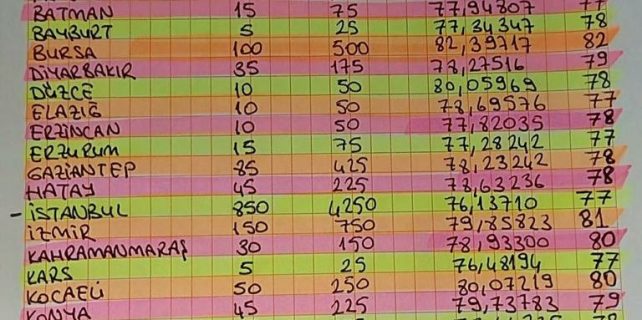 BATMAN 15 75 77,94807 77
BAYBURT 5 25 77,34347 78
BURSA 100 500 82,39717 82
DİYARBAKIR 35 175 78,27516 79
DÜZCE 10 50 80,05969 78
ELAZIĞ 10 50 78,69576 77
ERZİNCAN 10 50 77,82035 78
ERZURUM 15 75 77,28242 77
GAZİANTEP 85 425 78,23242 78
HATAY 45 225 78,63236 78
- İSTANBUL 850 4250 76,13710 77
İZMİR 150 750 79,85823 81
KAHRAMANMARAŞ 30 150 78,93300 80
KARS 5 25 76,48194 77
KOCAELİ 50 250 80,07219 80
KONYA 45 225 79,73783 79